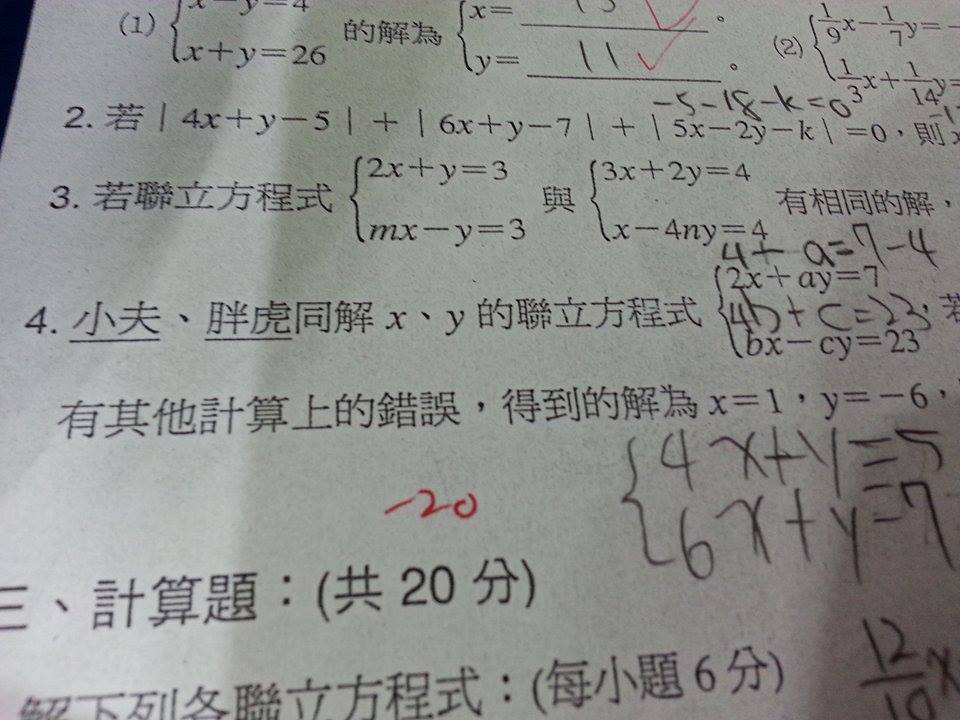 (1) { x－y=4 的解為 { x= 15 。
x+y=26 y= 11 。
(2) { 1/9x－1/7y=－
1/3x+1/14y=
-5-18-k=0
2. 若 | 4x+y－5 | + | 6x+y－7 | + | 5x－2y－k | =0，則
3. 若聯立方程式 { 2x+y=3 與 { 3x+2y=4 有相同的解，
mx－y=3 x－4ny=4
4+ a=7-4
4. 小夫、胖虎同解 x、y 的聯立方程式 { 2x+ay=7 ，若
4b+c=23
bx－cy=23
有其他計算上的錯誤，得到的解為 x=1，y=－6，
{ 4x+y=5
6x+y=7
-20
三、計算題：(共 20 分)
解下列各聯立方程式：(每小題 6 分)
12/10 x